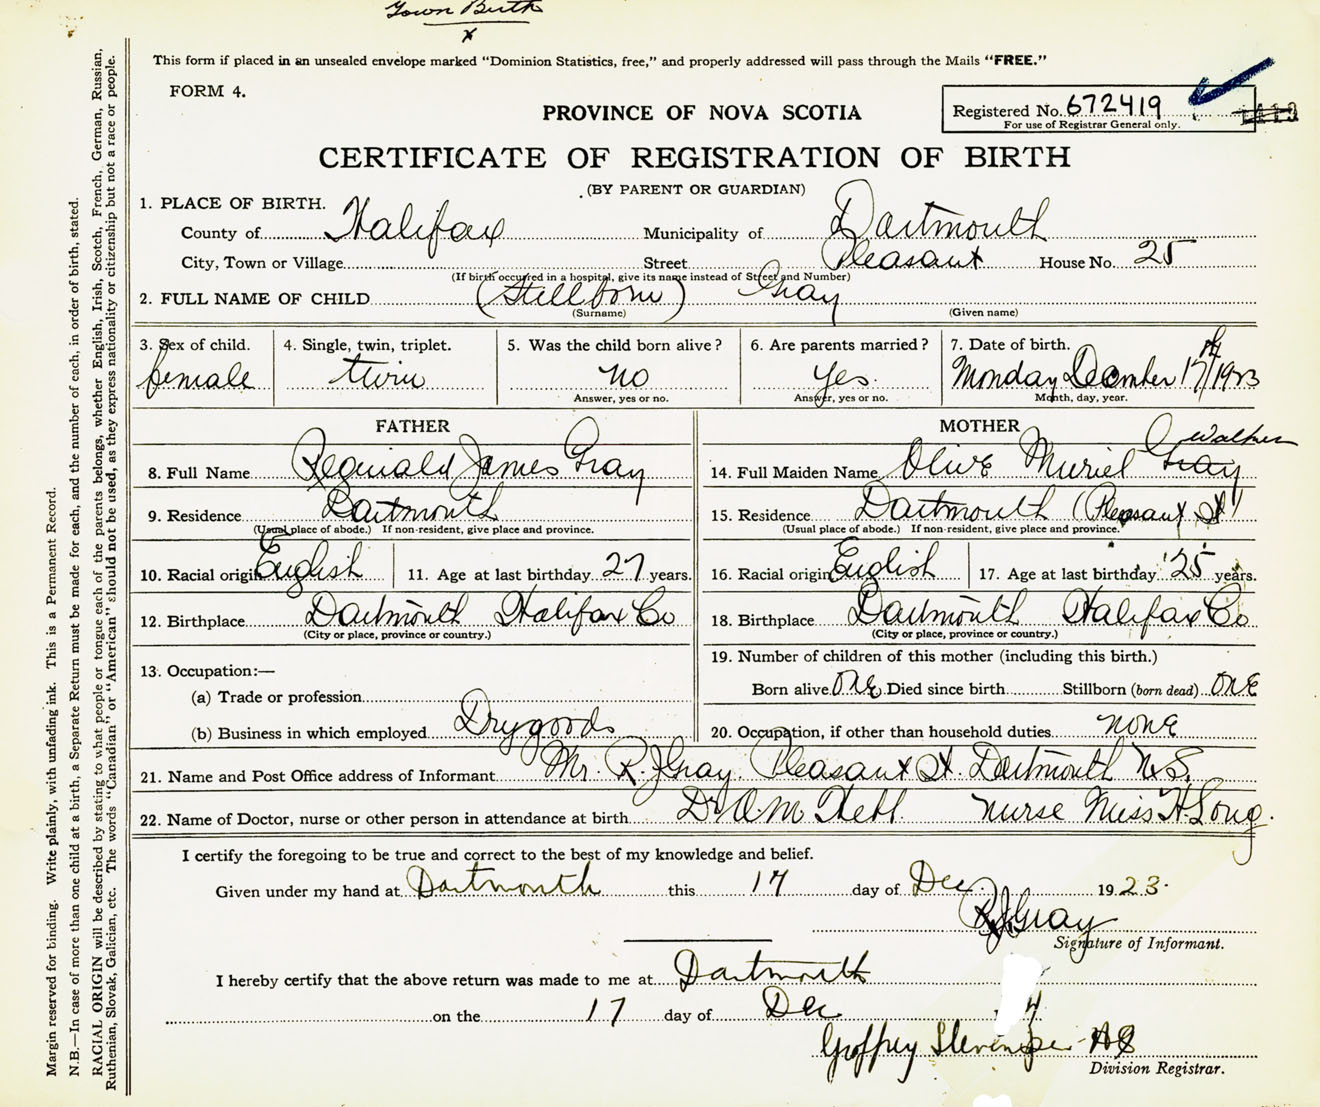 Town Birth
x
This form if placed in an unsealed envelope marked "Dominion Statistics, free," and properly addressed will pass through the Mails "FREE."
FORM 4.
PROVINCE OF NOVA SCOTIA
Registered No. 672419
For use of Registrar General only.
CERTIFICATE OF REGISTRATION OF BIRTH
(BY PARENT OR GUARDIAN)
1. PLACE OF BIRTH.
County of Halifax Municipality of Dartmouth
City, Town or Village Street Pleasant House No. 25
(If birth occurred in a hospital, give its name instead of Street and Number)
2. FULL NAME OF CHILD (Stillborn) Gray
(Surname) (Given name)
3. Sex of child. 4. Single, twin, triplet. 5. Was the child born alive? 6. Are parents married? 7. Date of birth.
female twin no Yes. Monday December 17th/1923
Answer, yes or no. Answer, yes or no. Month, day, year.
FATHER MOTHER
Walker
8. Full Name Reginald James Gray 14. Full Maiden Name Olive Muriel Gray
9. Residence Dartmouth 15. Residence Dartmouth (Pleasant St)
(Usual place of abode.) If non-resident, give place and province. (Usual place of abode.) If non-resident, give place and province.
10. Racial origin English 11. Age at last birthday 27 years. 16. Racial origin English 17. Age at last birthday 25 years.
12. Birthplace Dartmouth Halifax Co 18. Birthplace Dartmouth Halifax Co
(City or place, province or country.) (City or place, province or country.)
13. Occupation:— 19. Number of children of this mother (including this birth.)
(a) Trade or profession Born alive one Died since birth Stillborn (born dead) one
(b) Business in which employed Drygoods 20. Occupation, if other than household duties none
21. Name and Post Office address of Informant Mr. R. J Gray Pleasant St. Dartmouth N.S.
22. Name of Doctor, nurse or other person in attendance at birth Dr A M Hebb. nurse Miss H. Long.
I certify the foregoing to be true and correct to the best of my knowledge and belief.
Given under my hand at Dartmouth this 17 day of Dec. 1923.
R J Gray
Signature of Informant.
I hereby certify that the above return was made to me at Dartmouth
on the 17 day of Dec
Division Registrar.
Margin reserved for binding. Write plainly, with unfading ink. This is a Permanent Record.
N.B.—In case of more than one child at a birth, a Separate Return must be made for each, and the number of each, in order of birth, stated.
RACIAL ORIGIN will be described by stating to what people or tongue each of the parents belongs, whether English, Irish, Scotch, French, German, Russian,
Ruthenian, Slovak, Galician, etc. The words "Canadian" or "American" should not be used, as they express nationality or citizenship but not a race or people.